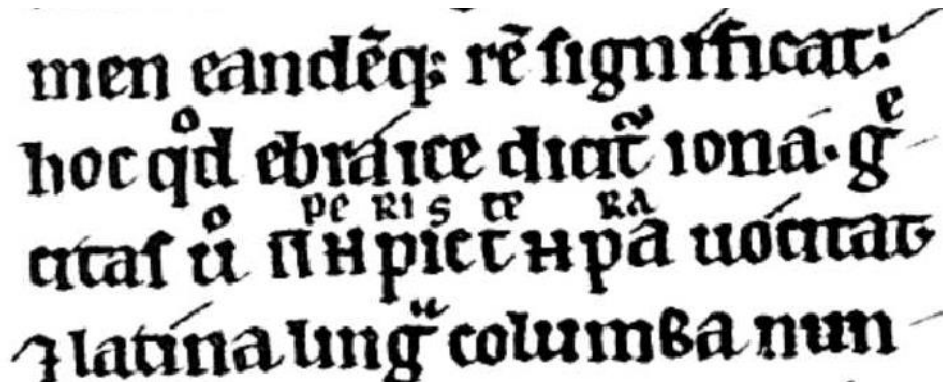 men eandēq; rē ſignificat:
hoc qͦd ebráice dicit᷑ ioná· gͤ
PE RI S TE RA
citaſ uͦ ΠΗΡΙCΤΗΡΑ uócitat
⁊ latína lingͧ columba nun